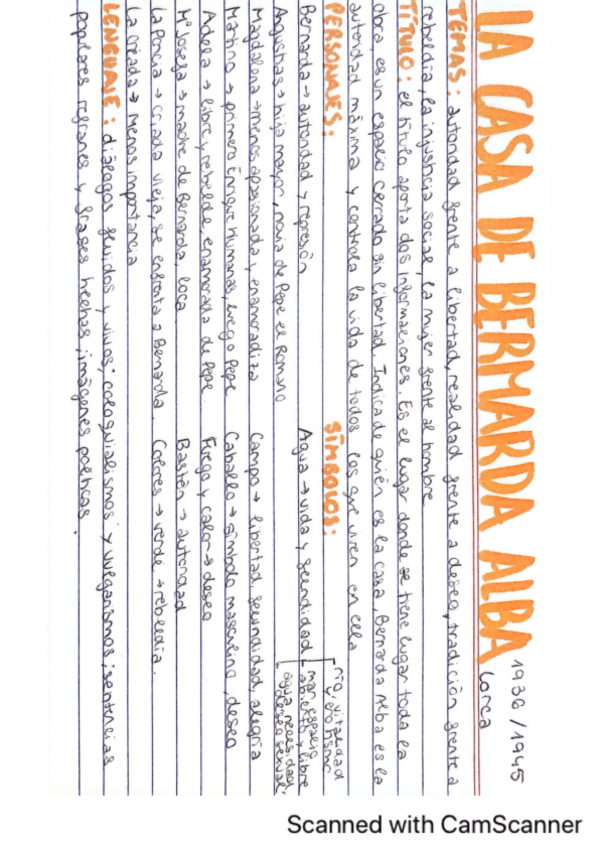 LA CASA DE BERMARDA ALBA 1936/1945
Lorca
TEMAS: autoridad frente a libertad, realidad frente a deseo, tradición frente a
rebeldía, la injusticia social, la mujer frente al hombre
TÍTULO: el título aporta dos informaciones. Es el lugar donde se tiene lugar toda la
obra, es un espacio cerrado sin libertad. Indica de quién es la casa, Bernarda Alba es la
autoridad máxima y controla la vida de todos los que viven en ella
PERSONAJES: SÍMBOLOS:
Bernarda → autoridad y represión Agua → vida y fecundidad
río, vitalidad y erotismo
mar, espacio abierto y libre
agua, necesidad, deseo sexual.
Angustias → hija mayor, novia de Pepe el Romano
Magdalena → menos apasionada y enamoradiza Campo → libertad, fecundidad, alegría
Martirio → primero Enrique Humanas, luego Pepe Caballo → símbolo masculino, deseo
Adela → libre y rebelde, enamorada de Pepe Fuego y calor → deseo
Mª Josefa → madre de Bernarda, loca Bastón → autoridad
La Poncia → criada vieja, se enfrenta a Bernarda. Colores → verde → rebeldía.
La criada → menos importancia
LENGUAJE: diálogos fluidos y vivos; coloquialismos y vulgarismos; sentencias
populares refranes y frases hechas; imágenes poéticas.
Scanned with CamScanner